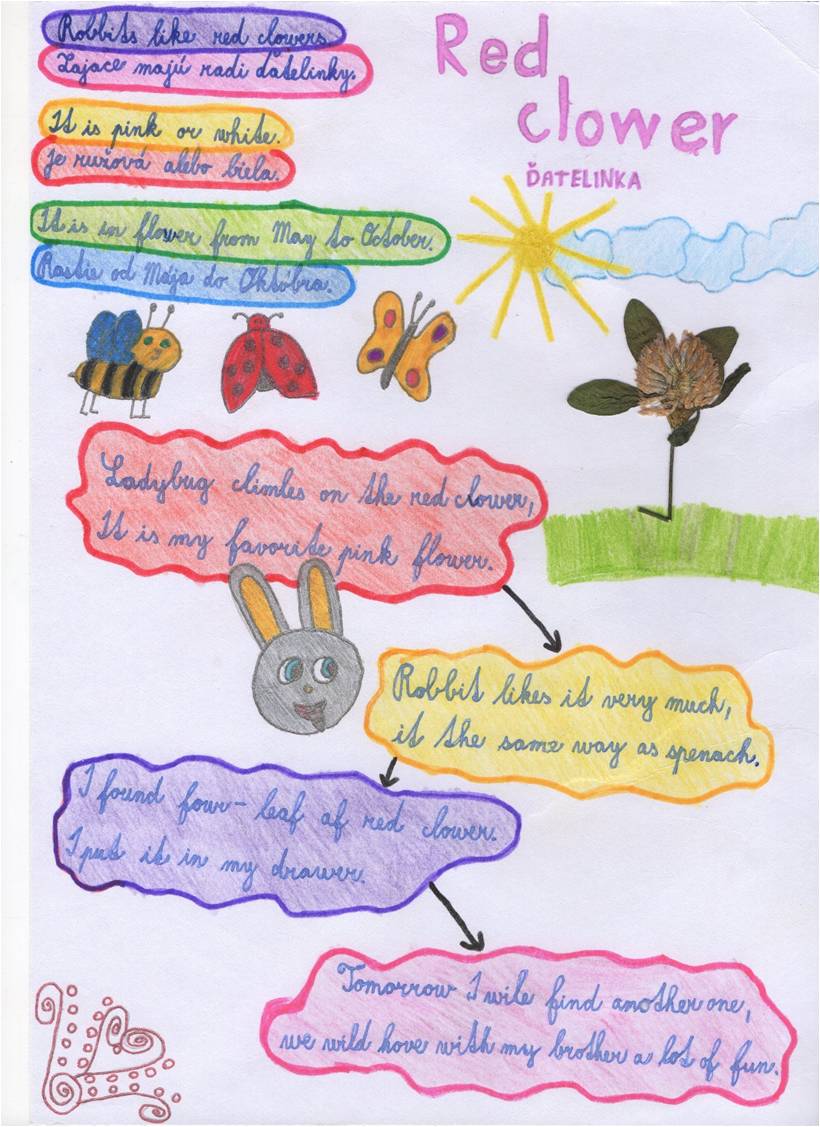 Rabbits like red clowers
Zajace majú radi ďatelinky.
It is pink or white.
Je ružová alebo biela.
It is in flower from May to October.
Rastie od Mája do Októbra.
Red
clower
ĎATELINKA
Ladybug climbes on the red clower,
It is my favorite pink flower.
Rabbit likes it very much,
it the same way as spenach.
I found four-leaf af red clower.
I put it in my drawer.
Tomorrow I wile find another one,
we wild hove with my brother a lot of fun.